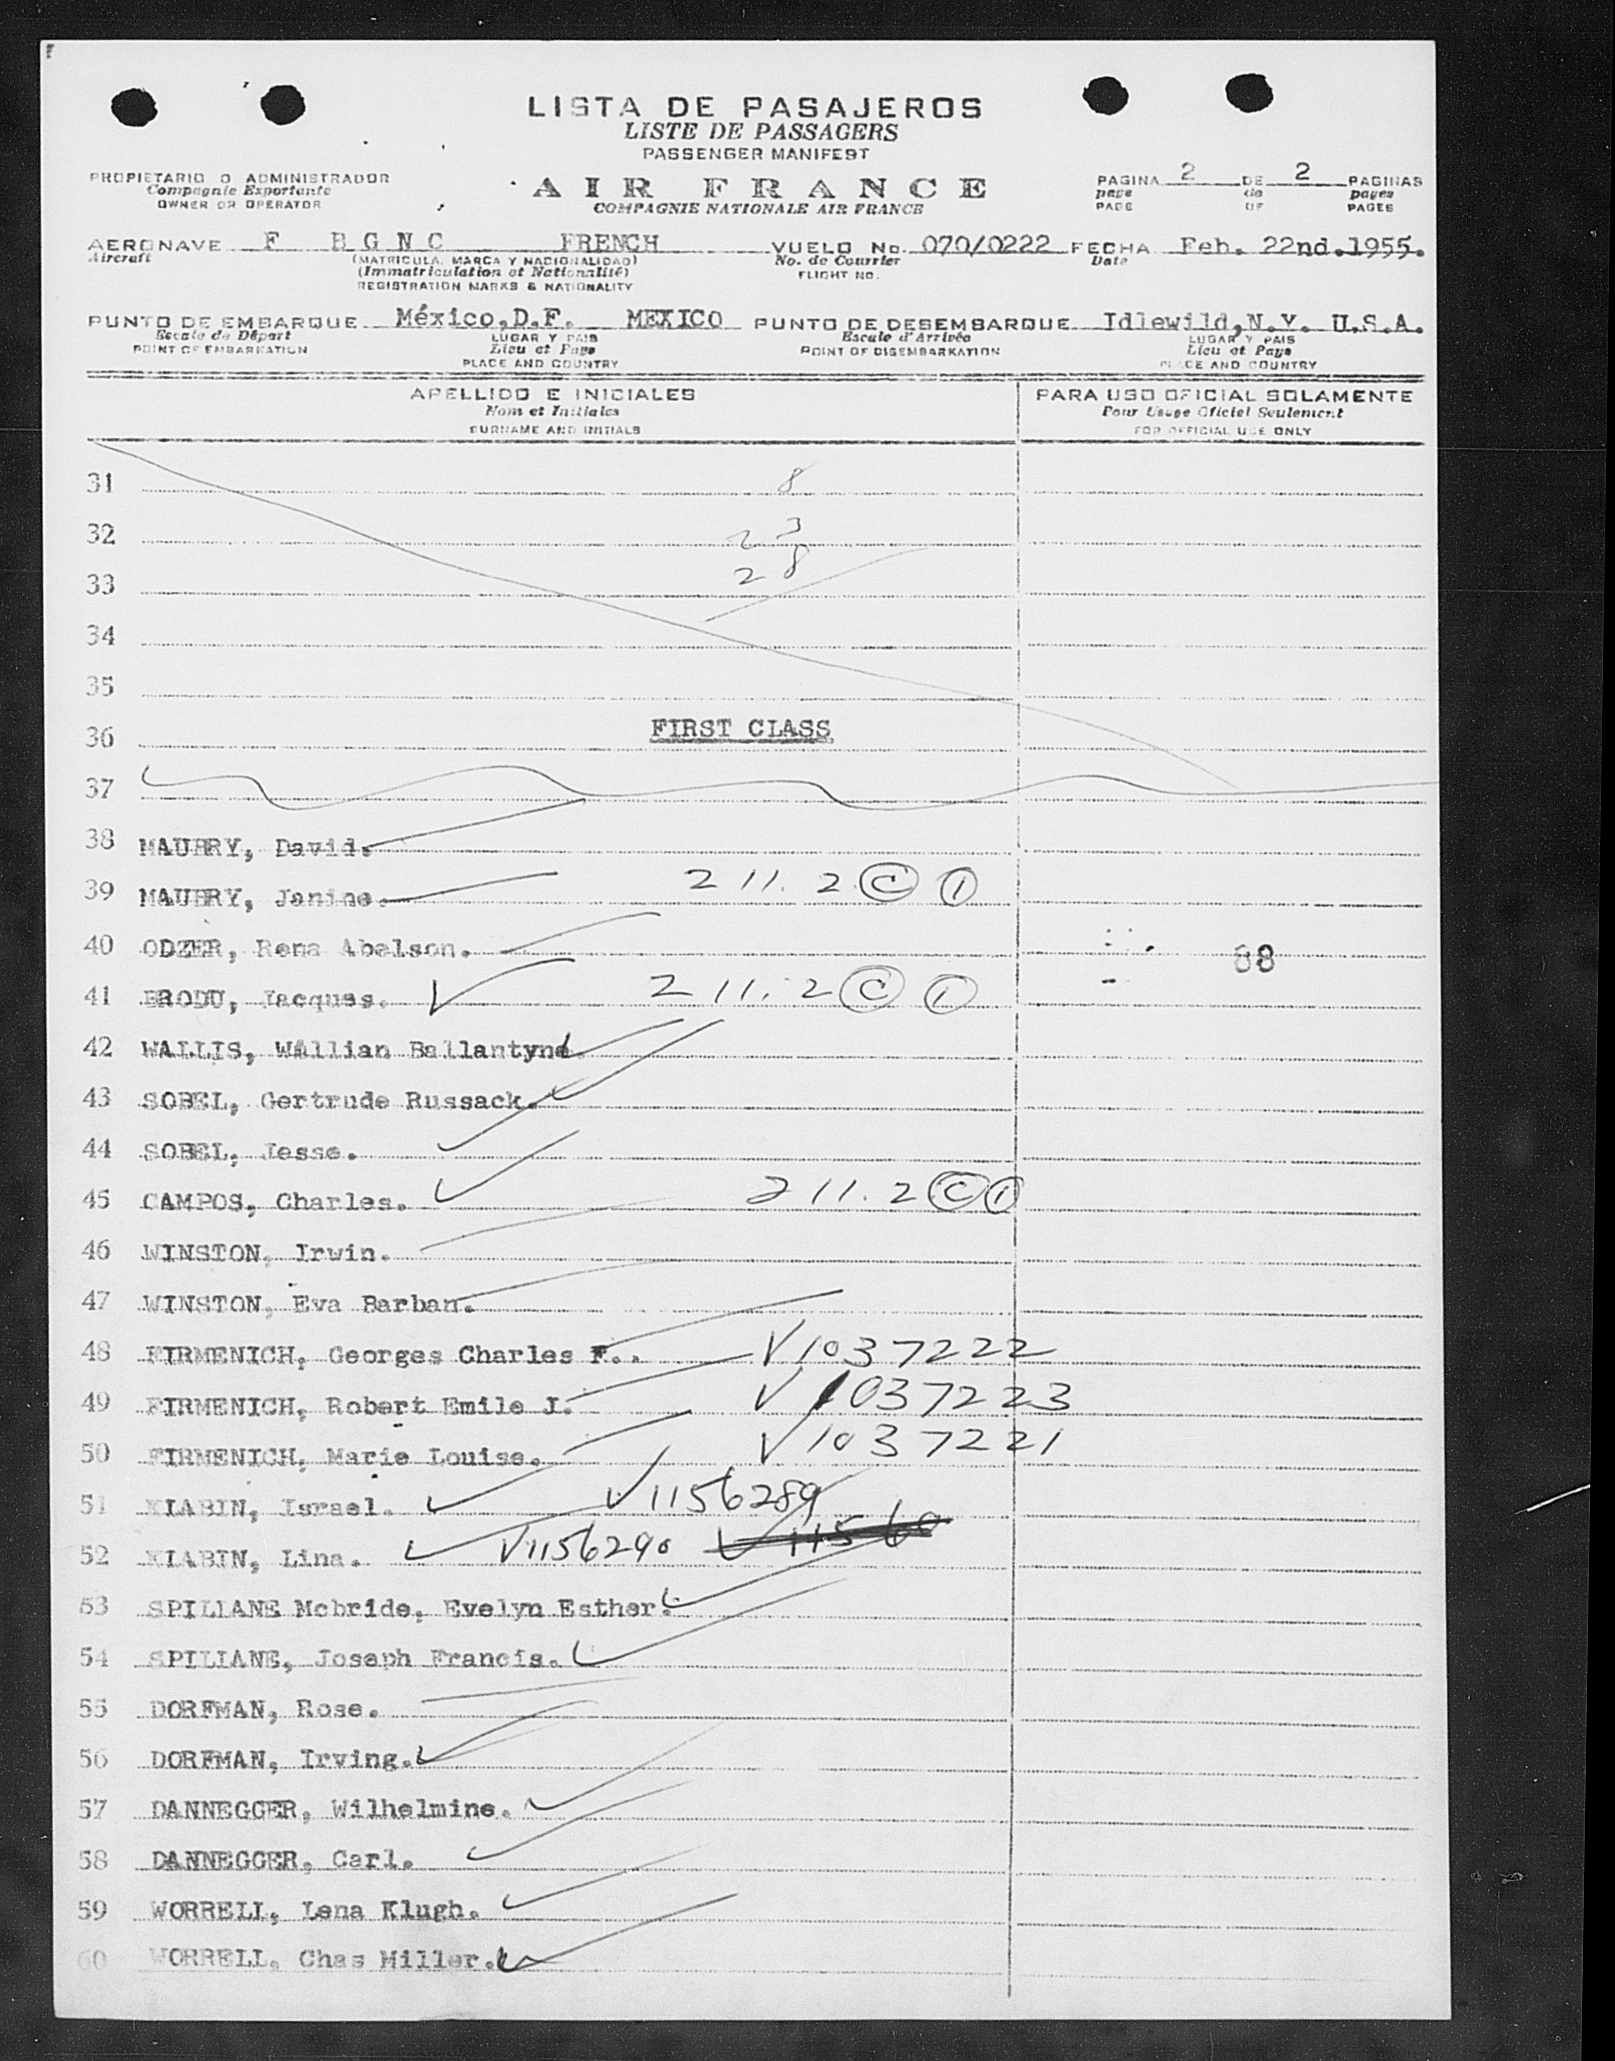 LISTA DE PASAJEROS
LISTE DE PASSAGERS
PASSENGER MANIFEST
PROPIETARIO O ADMINISTRADOR
Compagnie Exportante
OWNER OR OPERATOR
AIR FRANCE
COMPAGNIE NATIONALE AIR FRANCE
PAGINA 2 DE 2 PAGINAS
page de pages
PAGE OF PAGES
AERONAVE F B G N C FRENCH VUELO No. 070/0222 FECHA Feb. 22nd.1955.
Aircraft (MATRICULA, MARCA Y NACIONALIDAD) No. de Courrier Date
(Immatriculation et Nationalité) FLIGHT NO.
REGISTRATION MARKS & NATIONALITY
PUNTO DE EMBARQUE México,D.F. MEXICO PUNTO DE DESEMBARQUE Idlewild,N.Y. U.S.A.
Escale de Départ LUGAR Y PAIS Escale d'Arrivée LUGAR Y PAIS
POINT OF EMBARKATION Lieu et Pays POINT OF DISEMBARKATION Lieu et Pays
PLACE AND COUNTRY PLACE AND COUNTRY
APELLIDO E INICIALES PARA USO OFICIAL SOLAMENTE
Nom et Initiales Pour Usage Oficiel Seulement
SURNAME AND INITIALS FOR OFFICIAL USE ONLY
31 8
32 2 3
33 2 8
34
35
36 FIRST CLASS
37
38 MAUBRY, David.
39 MAUBRY, Janine. 2 11. 2 C 1
40 ODZER, Rena Abelson. 88
41 BRODU, Jacques. 2 11. 2 C 1
42 WALLIS, Wallian Ballantyne.
43 SOBEL, Gertrude Russack.
44 SOBEL, Jesse.
45 CAMPOS, Charles. 2 11. 2 C 1
46 WINSTON, Irwin.
47 WINSTON, Eva Barban.
48 FIRMENICH, Georges Charles F.. ✓1037222
49 FIRMENICH, Robert Emile J. ✓1037223
50 FIRMENICH, Marie Louise. ✓1037221
51 KLABIN, Israel. ✓1156289
52 KLABIN, Lina. ✓1156290
53 SPILLANE Mcbride, Evelyn Esther.
54 SPILLANE, Joseph Francis.
55 DORFMAN, Rose.
56 DORFMAN, Irving.
57 DANNEGGER, Wilhelmine.
58 DANNEGGER, Carl.
59 WORRELL, Lena Klugh.
60 WORRELL, Chas Miller.